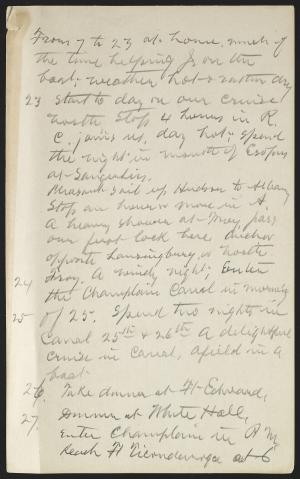 From 7 to 23 at home, much of
the time helping J, on the
boat; weather hot & rather dry
23 Start to day on our cruise
north. Stop 4 hours in R.
C. joins us, day hot; spend
the night in mouth of Esopus
at Saugerties.
Pleasant sail up Hudson to Albany
Stop an hour or more in A.
A heavy shower at Troy, pass
our first lock here, anchor
opposite Lansingburg, or north
24 Troy. A windy night; Enter
the Champlain Canal in morning
25 of 25. Spend two nights in
Canal 25th & 26th A delightful
cruise in Canal, afield in a
boat.
26. Take dinner at Ft Edward,
27. Dinner at White Hall,
Enter Champlain in P M
Reach Ft Ticonderoga at 6